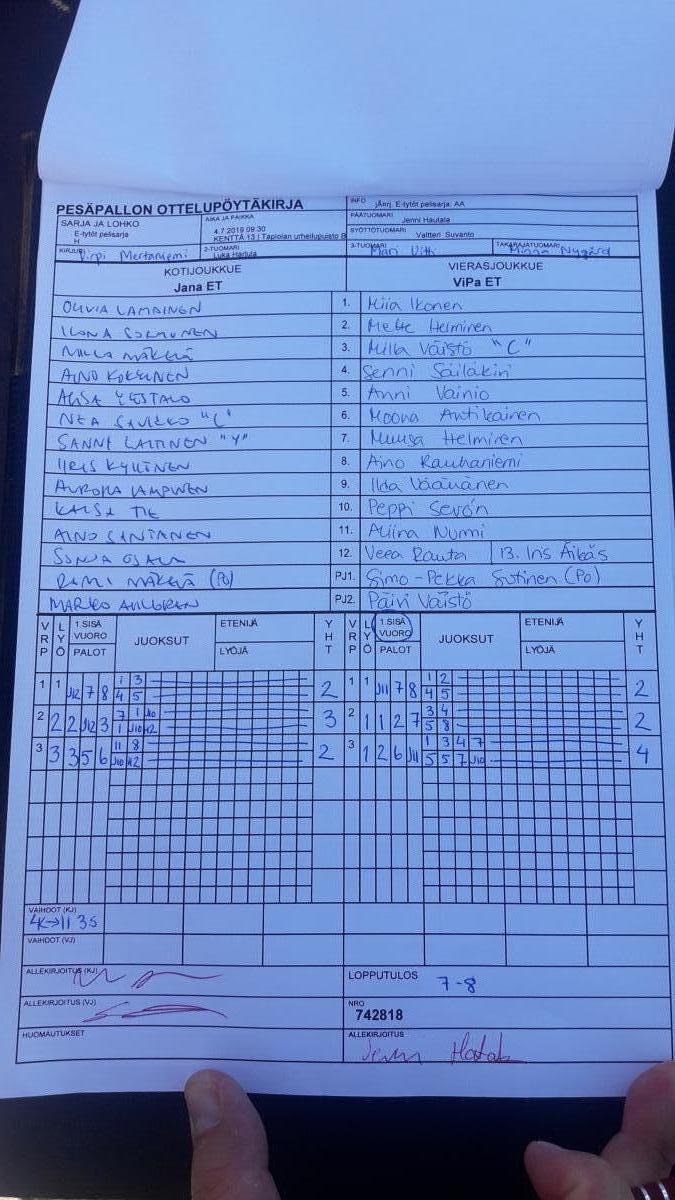 PESÄPALLON OTTELUPÖYTÄKIRJA
INFO jÄnrj. E-tytöt pelisarja: AA
SARJA JA LOHKO
E-tytöt pelisarja
H
AIKA JA PAIKKA
4.7.2019 09:30
KENTTÄ 13 | Tapiolan urheilupuisto B
PÄÄTUOMARI Jenni Hautala
SYÖTTÖTUOMARI Valtteri Suvanto
KIRJURI Pirpi Mertaniemi
2-TUOMARI Luka Hartula
3-TUOMARI Mari Uith
TAKARAJATUOMARI Minna Nygård
KOTIJOUKKUE
Jana ET
VIERASJOUKKUE
ViPa ET
OLIVIA LAMMINEN 1. Miia Ikonen
ILONA SORMUNEN 2. Mette Helminen
MILLA MÄKELÄ 3. Milla Väistö "C"
AINO KOKKINEN 4. Senni Säiläkivi
AIISA YLISTALO 5. Anni Vainio
NEA "C" 6. Moona Antikainen
SANNI LAITINEN "Y" 7. Muusa Helminen
IIRIS KYLLINEN 8. Aino Rauhaniemi
AURORA LAMPINEN 9. Ilda Väänänen
KAISA TIE 10. Peppi Sevón
AINO SANTANEN 11. Aliina Nurmi
SONJA OJALA 12. Veera Rauta 13. Iris Äikäs
RAMI MÄKELÄ (PO) PJ1. Simo-Pekka Sutinen (PO)
MARKO AHLGREN PJ2. Päivi Väistö
VRP LYÖ 1.SISÄ VUORO PALOT JUOKSUT ETENIJÄ LYÖJÄ YHT VRP LYÖ 1.SISÄ VUORO PALOT JUOKSUT ETENIJÄ LYÖJÄ YHT
1 1 J12 7 8 1 3 2 1 1 J11 7 8 1 2 2
4 5 4 5
2 2 2 J12 3 7 1 J10 3 2 1 1 2 7 3 4 2
1 J10 12 5 8
3 3 3 5 6 11 8 2 3 1 2 6 J11 1 3 4 7 4
J10 12 5 5 7 J10
VAIHDOT (KJ)
4K→11 3S
VAIHDOT (VJ)
ALLEKIRJOITUS (KJ)
LOPPUTULOS 7-8
ALLEKIRJOITUS (VJ)
NRO
742818
HUOMAUTUKSET
ALLEKIRJOITUS